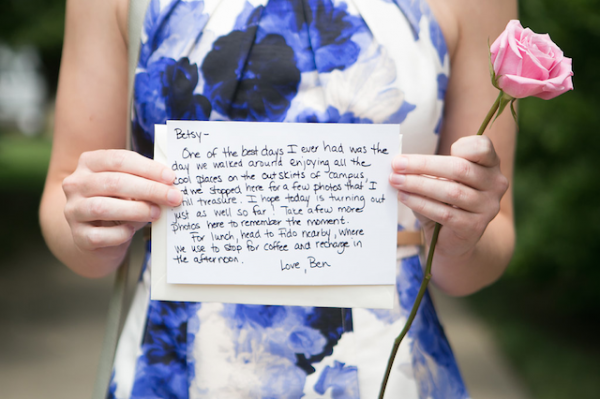 Betsy-
One of the best days I ever had was the
day we walked around enjoying all the
cool places on the outskirts of "campus"
and we stopped here for a few photos that I
still treasure. I hope today is turning out
just as well so far! Take a few more
photos here to remember the moment.
For lunch, head to Fido nearby, where
we use to stop for coffee and recharge in
the afternoon.
Love, Ben